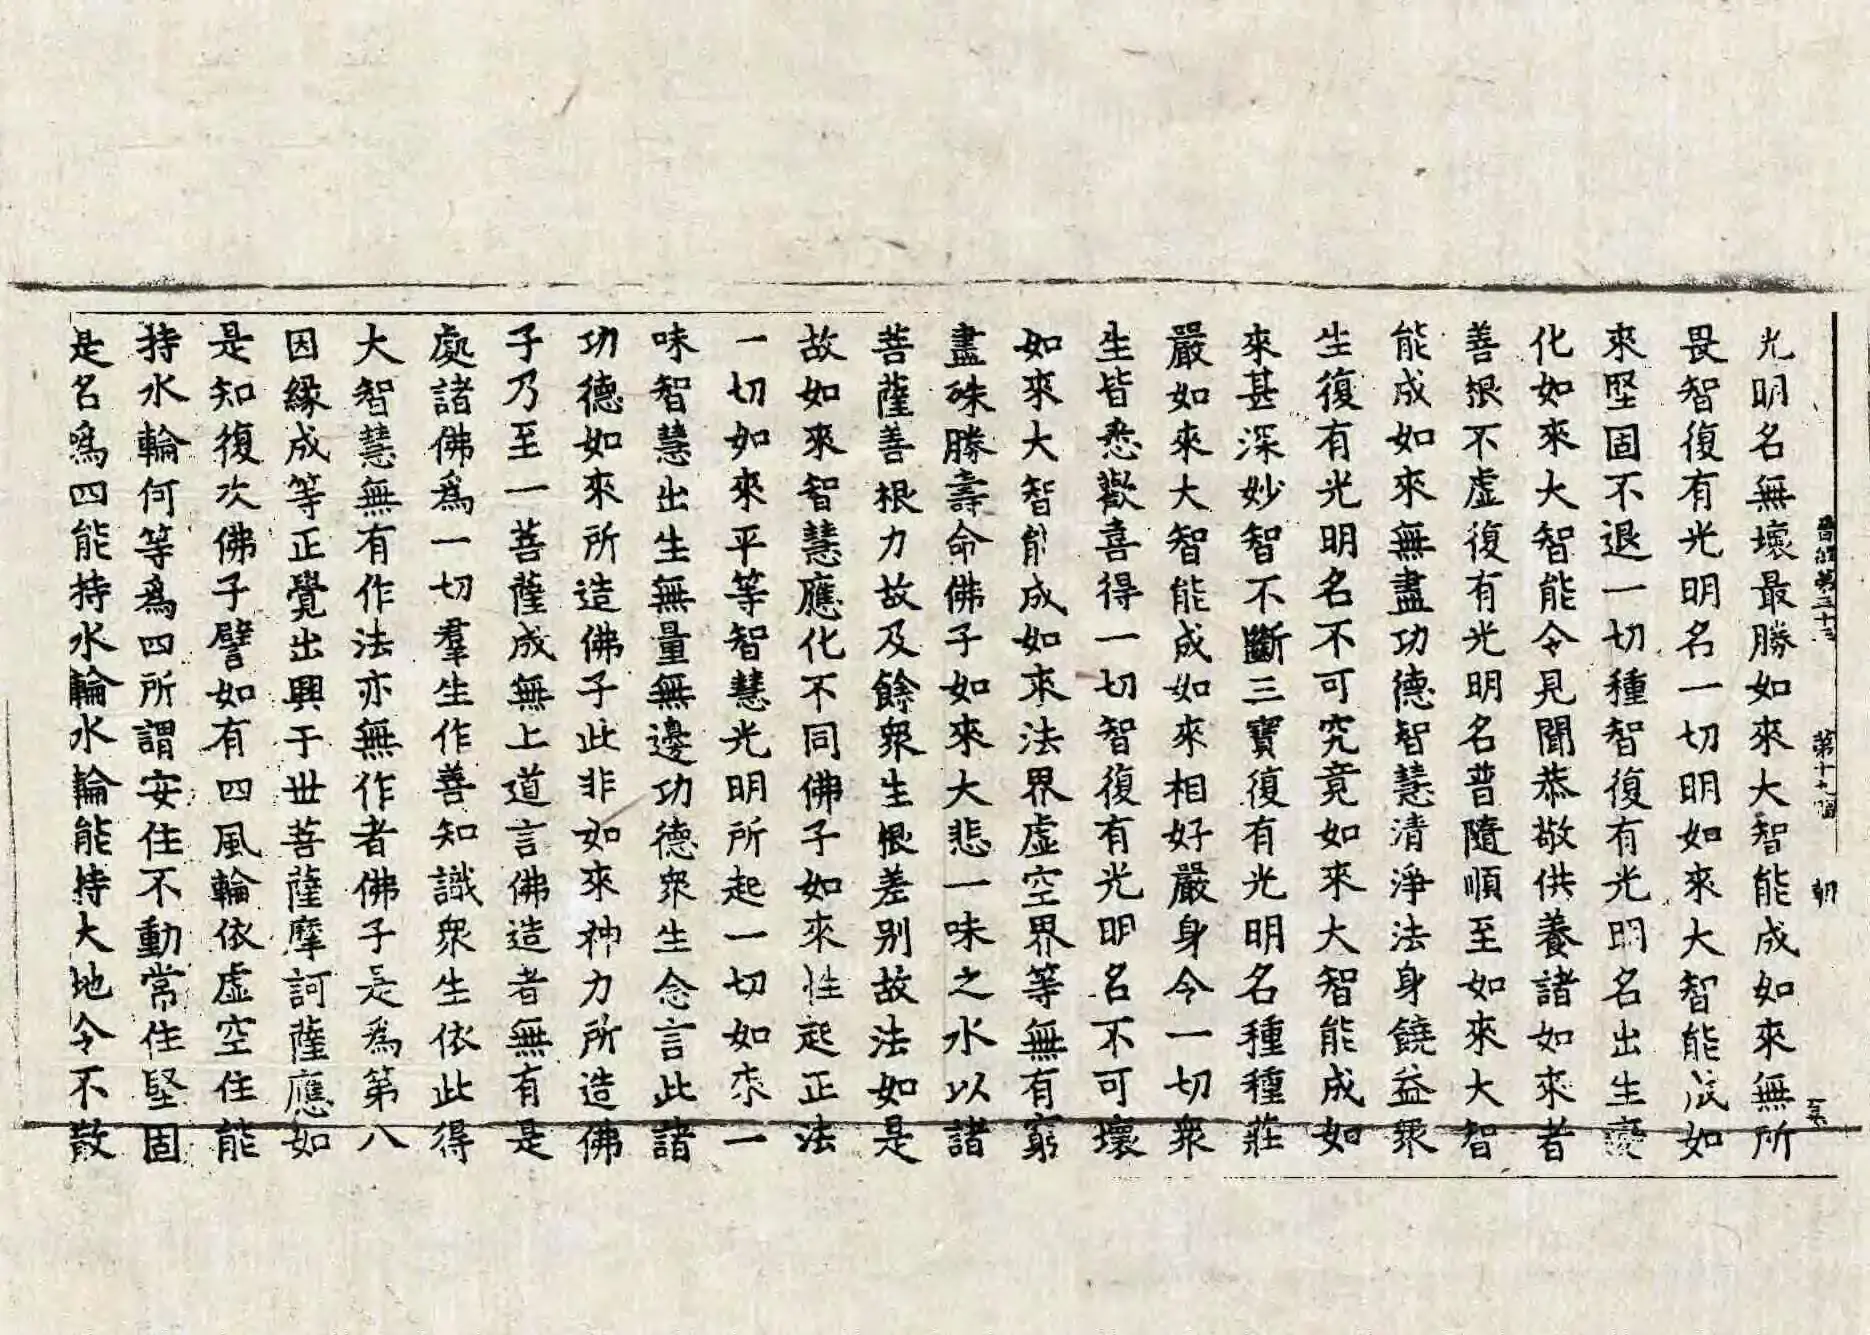 晋譯第三十三 第十九張 朝
光明名無壞最勝如來大智能成如來無所
畏智復有光明名一切明如來大智能成如
來堅固不退一切種智復有光明名出生變
化如來大智能令見聞恭敬供養諸如來者
善根不虛復有光明名普隨順至如來大智
能成如來無盡功德智慧清淨法身饒益衆
生復有光明名不可究竟如來大智能成如
來甚深妙智不斷三寶復有光明名種種莊
嚴如來大智能成如來相好嚴身令一切衆
生皆悉歡喜得一切智復有光明名不可壞
如來大智能成如來法界虛空界等無有窮
盡殊勝壽命佛子如來大悲一味之水以諸
菩薩善根力故及餘衆生根差別故法如是
故如來智慧應化不同佛子如來性起正法
一切如來平等智慧光明所起一切如來一
味智慧出生無量無邊功德衆生念言此諸
功德如來所造佛子此非如來神力所造佛
子乃至一菩薩成無上道言佛造者無有是
處諸佛爲一切羣生作善知識衆生依此得
大智慧無有作法亦無作者佛子是爲第八
因縁成等正覺出興于世菩薩摩訶薩應如
是知復次佛子譬如有四風輪依虛空住能
持水輪何等爲四所謂安住不動常住堅固
是名爲四能持水輪水輪能持大地令不散